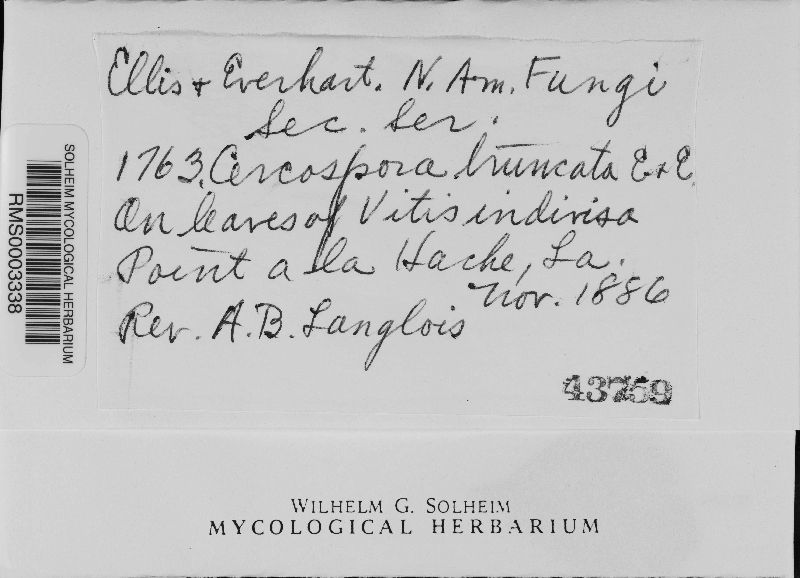 Ellis + Everhart. N. Am. Fungi
Sec. Ser.
1763. Cercospora truncata E. & E.
On leaves of Vitis indivisa
Point a la Hache, La.
Nov. 1886
Rev. A. B. Langlois
43759
SOLHEIM MYCOLOGICAL HERBARIUM
RMS0003338
WILHELM G. SOLHEIM
MYCOLOGICAL HERBARIUM